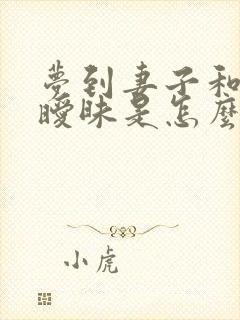 夢到妻子和
曖昧是怎麼
小虎